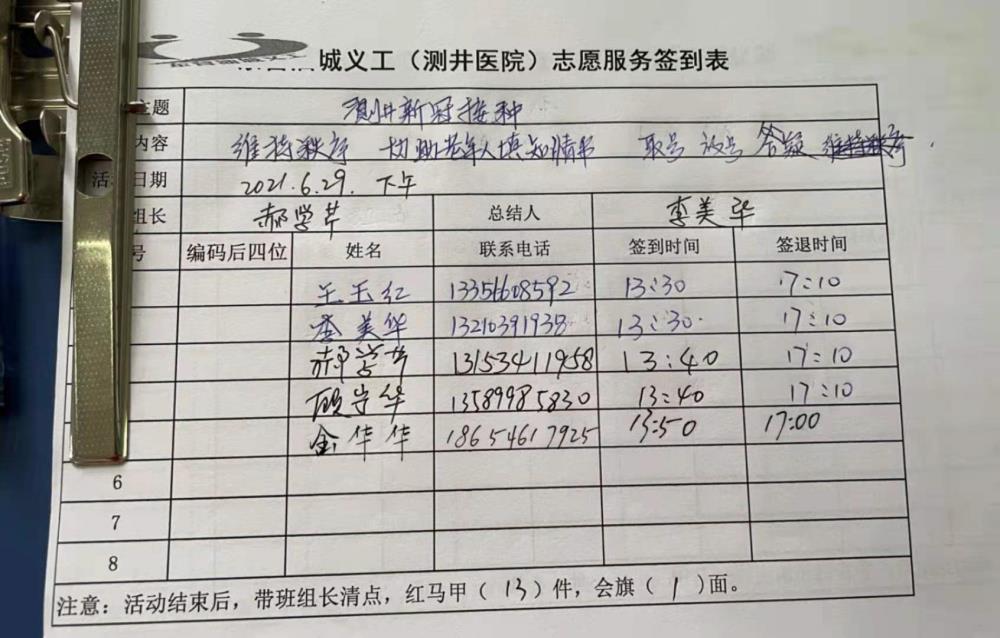 城义工（测井医院）志愿服务签到表
主题 测井新冠接种
内容 维持秩序 协助老年人填知情书 取号 放号 答疑
活 日期 2021.6.29. 下午
组长 郝学芹 总结人 李美华
号 编码后四位 姓名 联系电话 签到时间 签退时间
王玉红 13351608592 13:30 17:10
李美华 13210391938 13:30 17:10
郝学芹 13153411958 13:40 17:10
顾守华 13589985830 13:40 17:10
金华华 18654617925 13:50 17:00
6
7
8
注意：活动结束后，带班组长清点，红马甲（13）件，会旗（1）面。